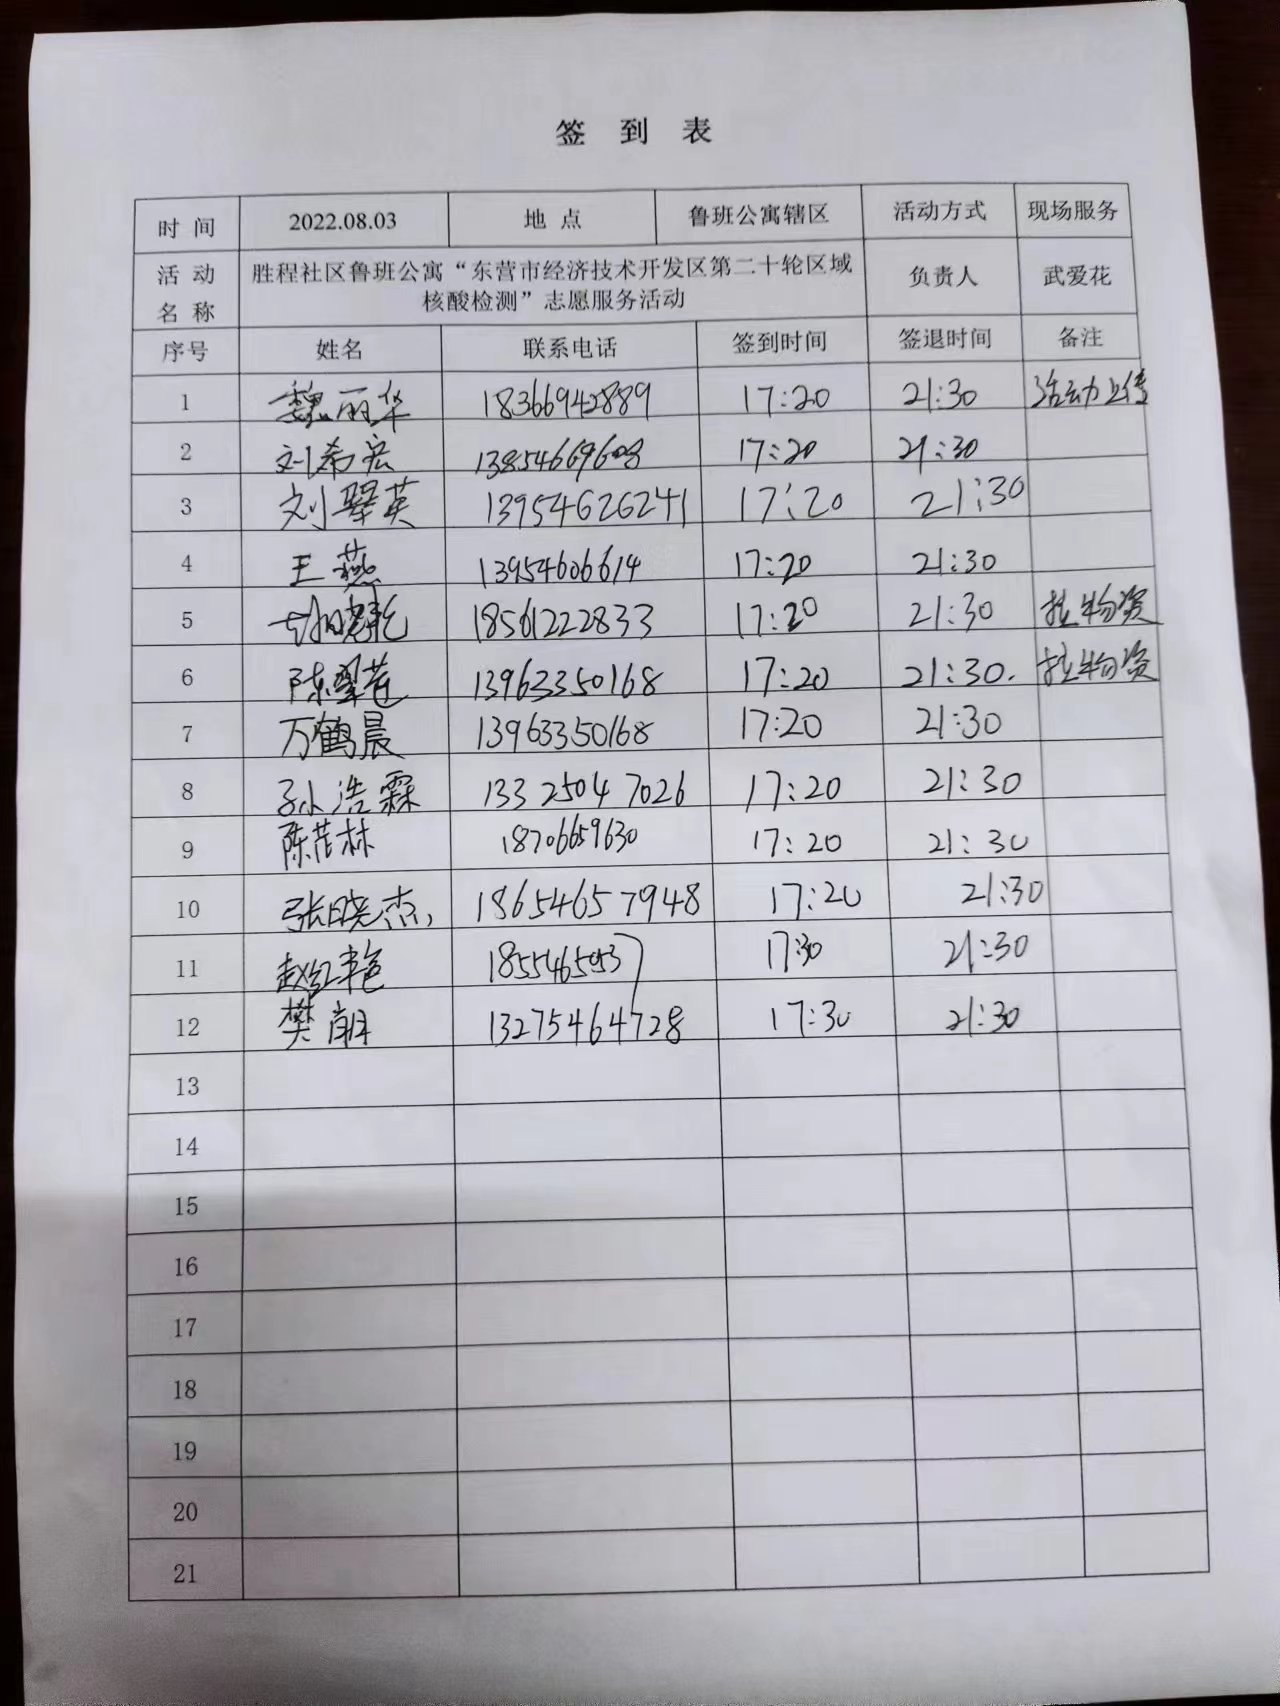 签 到 表
时 间 2022.08.03 地 点 鲁班公寓辖区 活动方式 现场服务
活 动 名 称 胜程社区鲁班公寓“东营市经济技术开发区第二十轮区域 负责人 武爱花
核酸检测”志愿服务活动
序号 姓名 联系电话 签到时间 签退时间 备注
1 魏丽华 18366942889 17:20 21:30 活动上传
2 刘希宏 13854669608 17:20 21:30
3 刘翠英 13954626241 17:20 21:30
4 王燕 13954606614 17:20 21:30
5 18561222833 17:20 21:30 拉物资
6 陈翠苍 13963350168 17:20 21:30. 拉物资
7 万鹤晨 13963350168 17:20 21:30
8 孙浩霖 13325047026 17:20 21:30
9 陈茂林 18706659630 17:20 21:30
10 张晓杰 18654657948 17:20 21:30
11 赵红艳 17:30 21:30
12 樊朝 13275464728 17:30 21:30
13
14
15
16
17
18
19
20
21